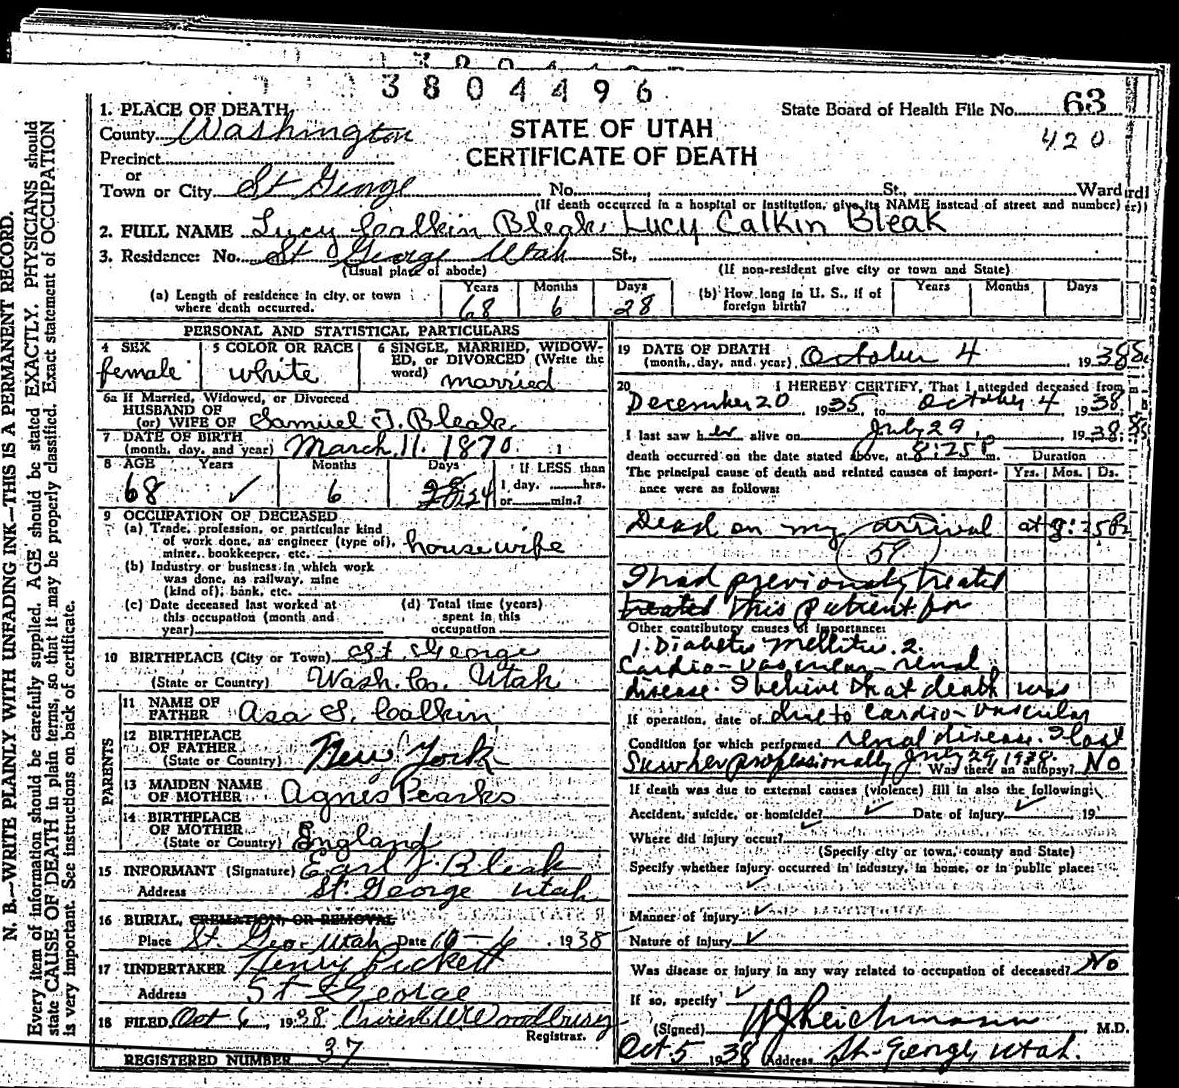 3804496
State Board of Health File No. 63
420
1. PLACE OF DEATH
County Washington
STATE OF UTAH
CERTIFICATE OF DEATH
Precinct
or
Town or City St George No. , St., Ward
(If death occurred in a hospital or institution, give its NAME instead of street and number)
2. FULL NAME Lucy Calkin Bleak, Lucy Calkin Bleak
3. Residence: No. St George Utah St.,
(Usual place of abode) (If non-resident give city or town and State)
(a) Length of residence in city or town where death occurred. Years 68 Months 6 Days 28
(b) How long in U. S., if of foreign birth? Years Months Days
PERSONAL AND STATISTICAL PARTICULARS
4 SEX female
5 COLOR OR RACE white
6 SINGLE, MARRIED, WIDOWED, or DIVORCED (Write the word) married
6a If Married, Widowed, or Divorced
HUSBAND OF
(or) WIFE OF Samuel T. Bleak
7 DATE OF BIRTH
(month, day, and year) March 11. 1870
8 AGE Years Months Days If LESS than
68 ✓ 6 24 1 day, hrs.
or min.?
9 OCCUPATION OF DECEASED
(a) Trade, profession, or particular kind
of work done, as engineer (type of),
miner, bookkeeper, etc. housewife
(b) Industry or business in which work
was done, as railway, mine
(kind of), bank, etc.
(c) Date deceased last worked at
this occupation (month and
year)
(d) Total time (years)
spent in this
occupation
10 BIRTHPLACE (City or Town) St. George
(State or Country) Wash. Co. Utah
PARENTS
11 NAME OF
FATHER Asa S. Calkin
12 BIRTHPLACE
OF FATHER
(State or Country) New York
13 MAIDEN NAME
OF MOTHER Agnes Pearks
14 BIRTHPLACE
OF MOTHER
(State or Country) England
15 INFORMANT (Signature) Earl J. Bleak
Address St George Utah
16 BURIAL, CREMATION, OR REMOVAL
Place St. Geo- Utah Date 10-6, 1938
17 UNDERTAKER Henry Pickett
Address St George
18 FILED Oct 6, 1938 Woodbury
Registrar.
REGISTERED NUMBER 37
19 DATE OF DEATH
(month, day, and year) October 4 1938
20 I HEREBY CERTIFY, That I attended deceased from
December 20, 1935, to October 4 1938
I last saw her alive on July 29, 1938.
death occurred on the date stated above, at 8:25P m.
Duration
The principal cause of death and related causes of importance were as follows: Yrs. Mos. Ds.
Dead on my arrival at 8:25P
59
I had previously treated
treated this patient for
Other contributory causes of importance:
1. Diabetes Mellitus. 2.
Cardio-vascular-renal
disease. I believe that death was
If operation, date of due to Cardio-vascular
Condition for which performed renal disease. I last
saw her professionally July 29, 1938.
Was there an autopsy? No
If death was due to external causes (violence) fill in also the following:
Accident, suicide, or homicide? ✓ Date of injury ✓, 19
Where did injury occur? ✓
(Specify city or town, county and State)
Specify whether injury occurred in industry, in home, or in public place:
✓
Manner of injury ✓
Nature of injury ✓
Was disease or injury in any way related to occupation of deceased? No
If so, specify ✓
(Signed) W J Reichmann M.D.
Oct 5 1938 Address St. George, Utah.
N. B.—WRITE PLAINLY WITH UNFADING INK—THIS IS A PERMANENT RECORD.
Every item of information should be carefully supplied. AGE should be stated EXACTLY. PHYSICIANS should
state CAUSE OF DEATH in plain terms, so that it may be properly classified. Exact statement of OCCUPATION
is very important. See instructions on back of certificate.